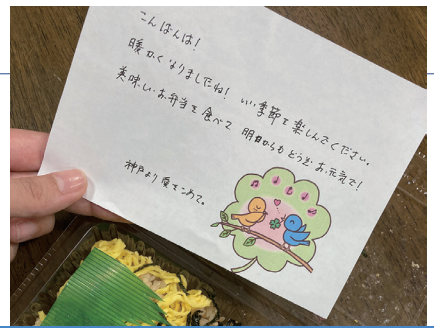 こんばんは!
暖かくなりましたね! いい季節を楽しんでください。
美味しいお弁当を食べて 明日からもどうぞお元気で!
神戸より愛をこめて。